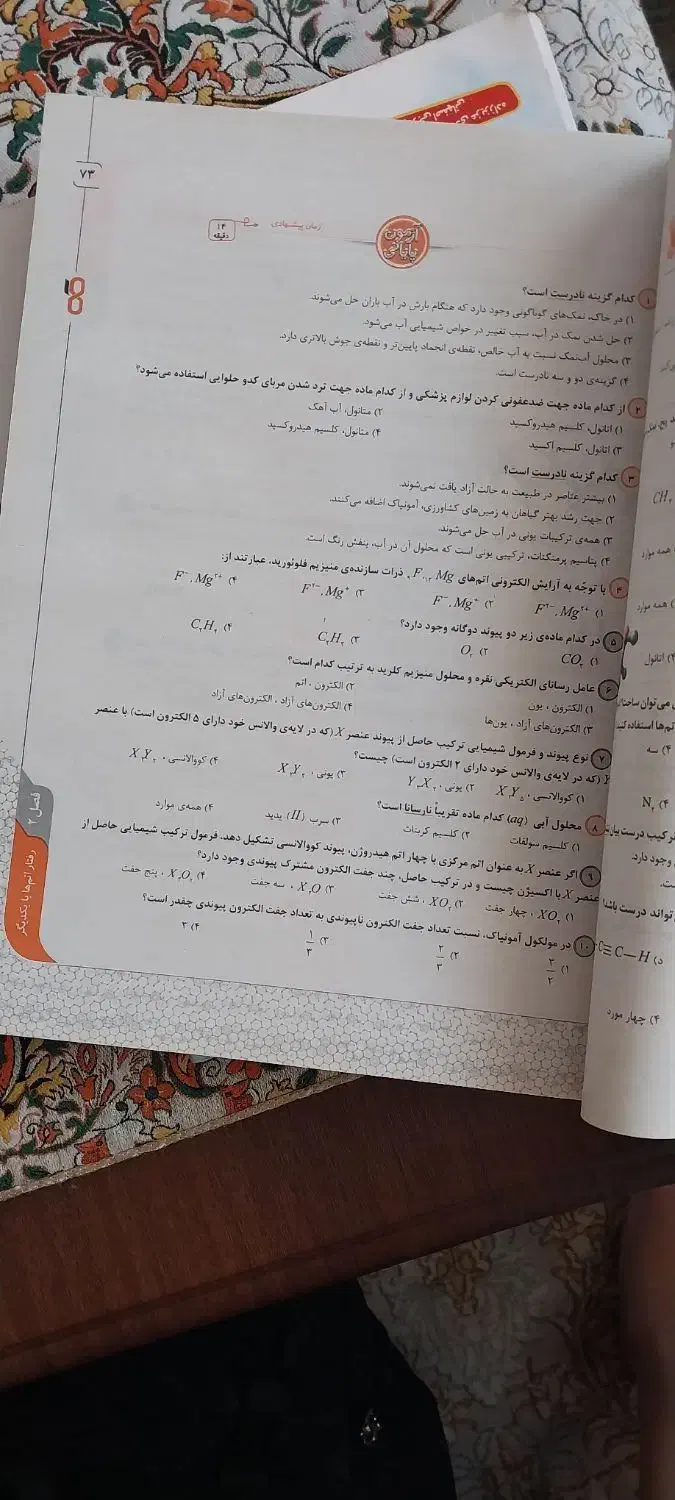 ۷۳
آزمون پایانی
زمان پیشنهادی
۱۴ دقیقه
۱ کدام گزینه نادرست است؟
۱) در خاک، نمک‌های گوناگونی وجود دارد که هنگام بارش در آب باران حل می‌شوند.
۲) حل شدن نمک در آب، سبب تغییر در خواص شیمیایی آب می‌شود.
۳) محلول آب‌نمک نسبت به آب خالص، نقطه‌ی انجماد پایین‌تر و نقطه‌ی جوش بالاتری دارد.
۴) گزینه‌ی دو و سه نادرست است.
۲ از کدام ماده جهت ضدعفونی کردن لوازم پزشکی و از کدام ماده جهت ترد شدن مربای کدو حلوایی استفاده می‌شود؟
۱) اتانول، کلسیم هیدروکسید ۲) متانول، آب آهک
۳) اتانول، کلسیم اکسید ۴) متانول، کلسیم هیدروکسید
۳ کدام گزینه نادرست است؟
۱) بیشتر عناصر در طبیعت به حالت آزاد یافت نمی‌شوند.
۲) جهت رشد بهتر گیاهان به زمین‌های کشاورزی، آمونیاک اضافه می‌کنند.
۳) همه‌ی ترکیبات یونی در آب حل می‌شوند.
۴) پتاسیم پرمنگنات، ترکیبی یونی است که محلول آن در آب، بنفش رنگ است.
۴ با توجّه به آرایش الکترونی اتم‌های Mg و F، ذرات سازنده‌ی منیزیم فلوئورید، عبارتند از:
۱) F²⁻ , Mg²⁺ ۲) F⁻ , Mg⁺ ۳) F²⁻ , Mg⁺ ۴) F⁻ , Mg²⁺
۵ در کدام ماده‌ی زیر دو پیوند دوگانه وجود دارد؟
۱) CO₂ ۲) O₂ ۳) C₂H₂ ۴) C₂H₄
۶ عامل رسانای الکتریکی نقره و محلول منیزیم کلرید به ترتیب کدام است؟
۱) الکترون ، یون ۲) الکترون ، اتم
۳) الکترون‌های آزاد ، یون‌ها ۴) الکترون‌های آزاد ، الکترون‌های آزاد
۷ نوع پیوند و فرمول شیمیایی ترکیب حاصل از پیوند عنصر X (که در لایه‌ی والانس خود دارای ۵ الکترون است) با عنصر
Y (که در لایه‌ی والانس خود دارای ۲ الکترون است) چیست؟
۱) کووالانسی ، X₂Y₅ ۲) یونی ، Y₃X₂ ۳) یونی ، X₂Y₃ ۴) کووالانسی ، X₂Y₃
۸ محلول آبی (aq) کدام ماده تقریباً نارسانا است؟
۱) کلسیم سولفات ۲) کلسیم کربنات ۳) سرب (II) یدید ۴) همه‌ی موارد
۹ اگر عنصر X به عنوان اتم مرکزی با چهار اتم هیدروژن، پیوند کووالانسی تشکیل دهد، فرمول ترکیب شیمیایی حاصل از
عنصر X با اکسیژن چیست و در ترکیب حاصل، چند جفت الکترون مشترک پیوندی وجود دارد؟
۱) XO₂ ، چهار جفت ۲) XO₂ ، شش جفت ۳) X₂O ، سه جفت ۴) X₂O₂ ، پنج جفت
۱۰ در مولکول آمونیاک، نسبت تعداد جفت الکترون ناپیوندی به تعداد جفت الکترون پیوندی چقدر است؟
۱) ۳/۲ ۲) ۲/۳ ۳) ۱/۳ ۴) ۳
فصل ۲
رفتار اتم‌ها با یکدیگر
همه موارد
همه موارد
اتانول
۴) سه
۴) N₂
وجود دارد.
تواند درست باشد
د) C≡C—H
۴) چهار مورد